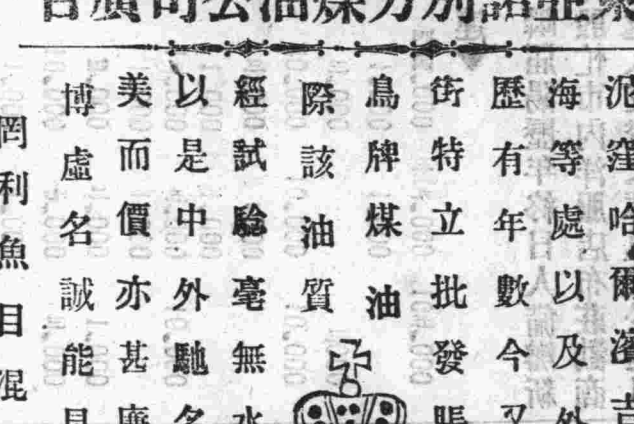 東亞諾別方煤油公司廣告
泥窪哈爾濱吉
海等處以及外
歷有年數今又
街特立批發賬
鳥牌煤油
際該油質
經試驗毫無水
以是中外馳名
美而價亦甚廉
博虛名誠能見
罔利魚目混